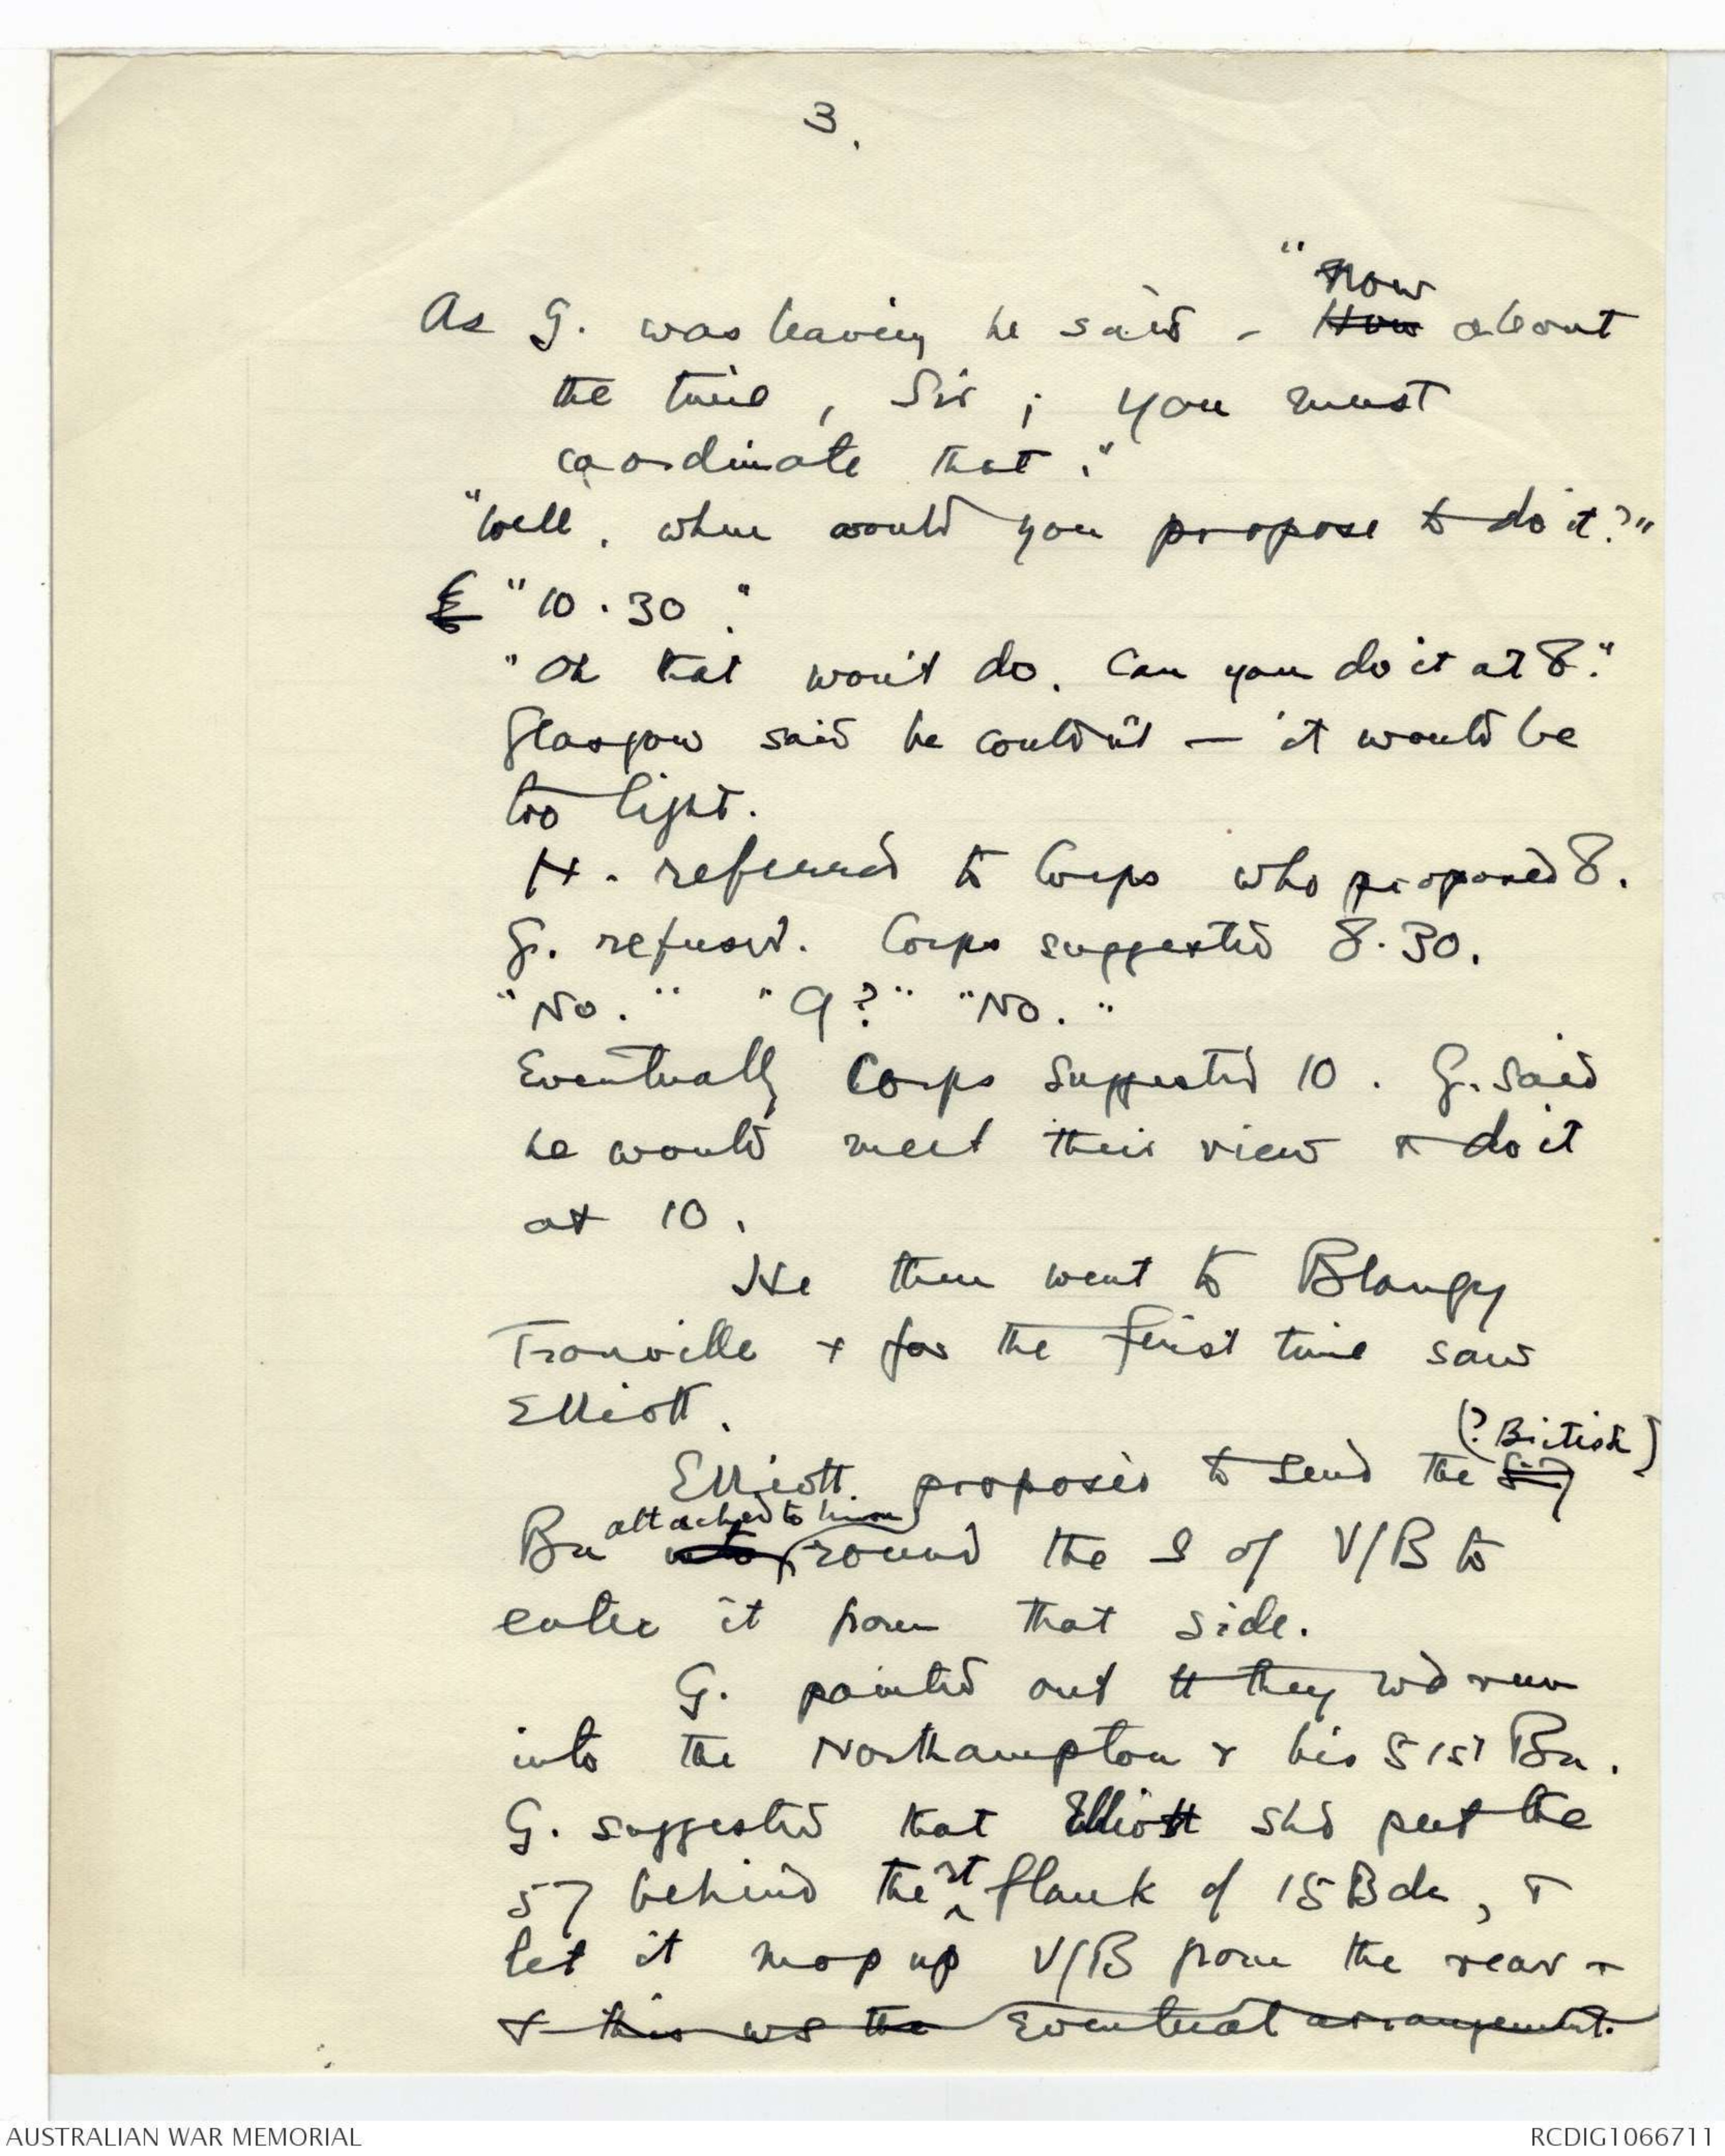 3.
"Now
As G. was leaving he said - How about
the time, Sir; you must
coordinate that."
"Well, when would you propose to do it?"
"10.30."
"Oh that won't do. Can you do it at 8."
Glasgow said he couldn't — it would be
too light.
H. referred to Corps who proposed 8.
G. refused. Corps suggested 8.30.
"No." "9?" "No."
Eventually Corps suggested 10. G. said
he would meet their view & do it
at 10.
He then went to Blangy
Tronville & for the first time saw
Elliott.
(? British)
Elliott proposed to send the 57
attached to him
Bn into round the S of V/B to
enter it from that side.
G. pointed out tt they wd run
into the Northampton & his 51st Bn.
G. suggested that Elliott shd put the
57 behind the rt flank of 15 Bde, &
let it mop up V/B from the rear &
& this ws the eventual arrangement.
AUSTRALIAN WAR MEMORIAL
RCDIG1066711